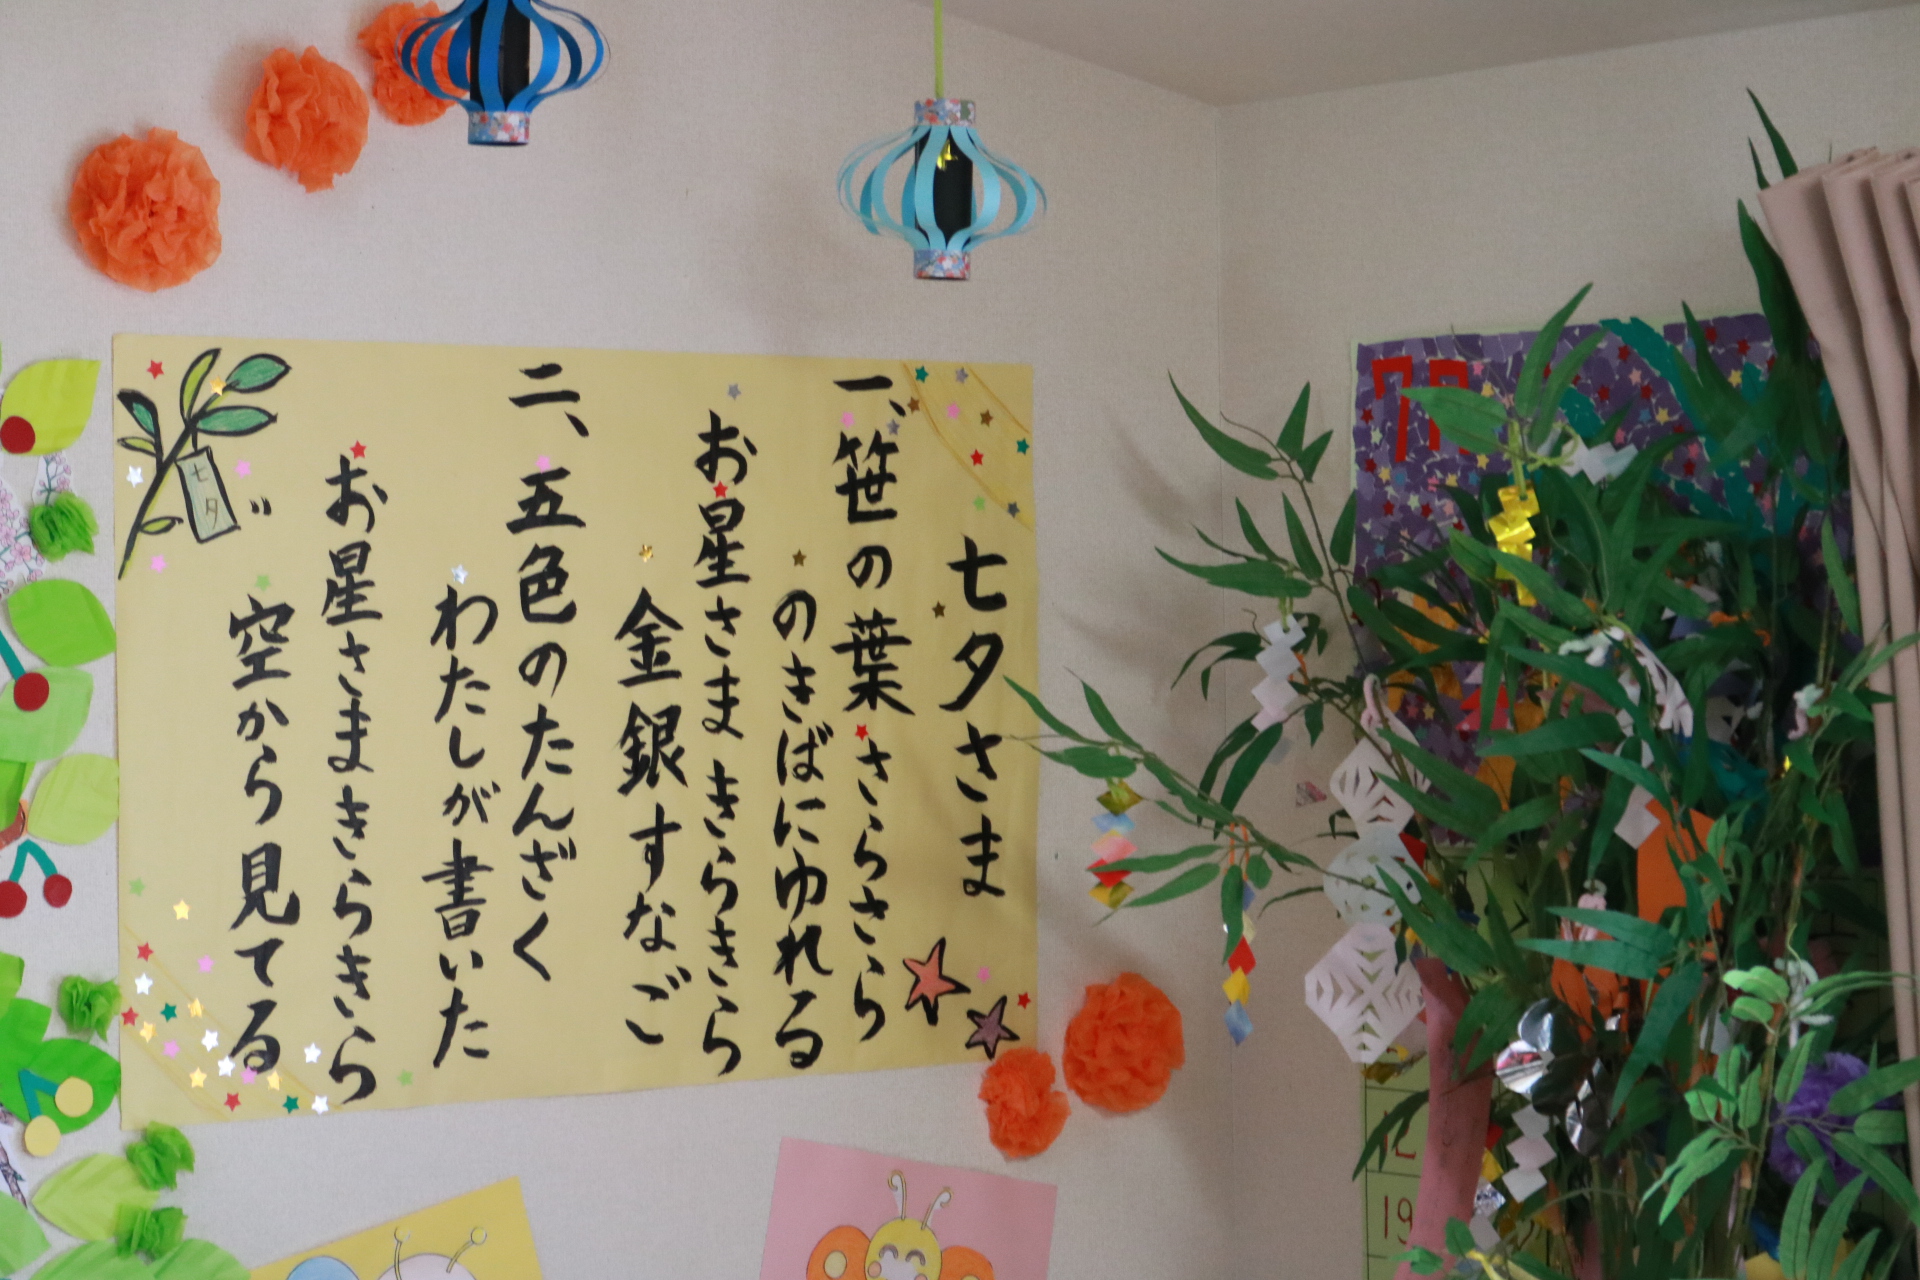 七夕さま
一、笹の葉さらさら
のきばにゆれる
お星さまきらきら
金銀すなご
二、五色のたんざく
わたしが書いた
お星さまきらきら
空から見てる
七夕
7月
12
19